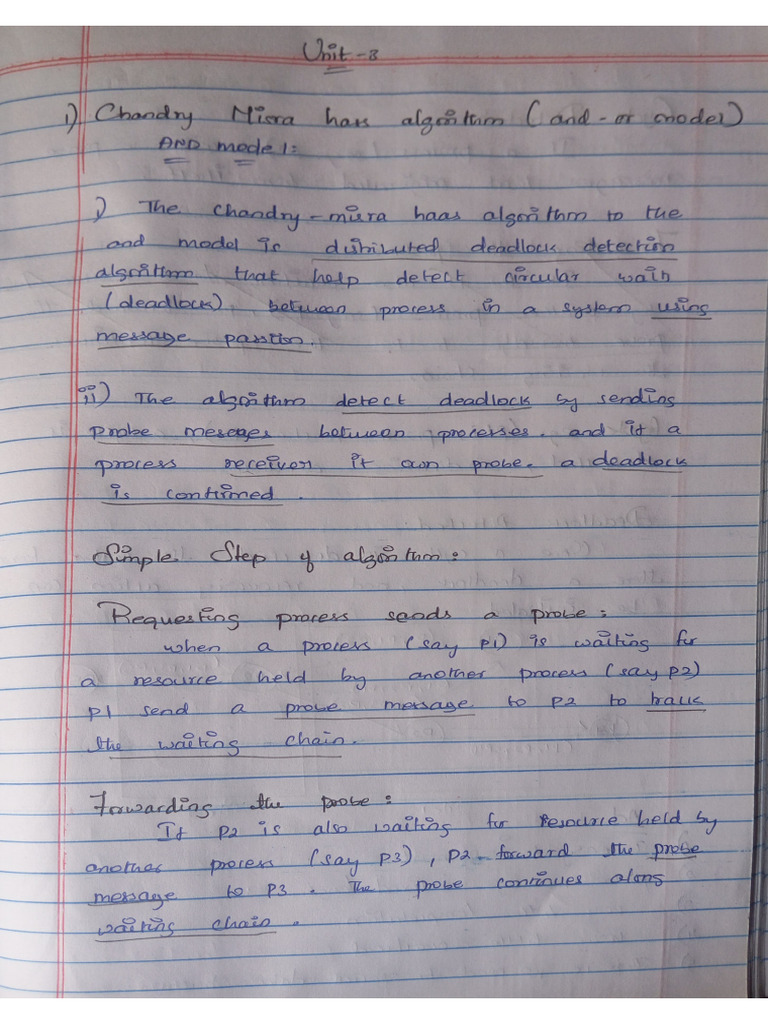 Unit-3
1) Chandry Misra hars algorithm (and-or model)
AND model:
i) The chandry-misra haas algorithm to the
and model is distributed deadlock detection
algorithm that help detect circular wait
(deadlock) between process in a system using
message passtion.
ii) The algorithm detect deadlock by sending
probe meseges between processes. and if a
process receiver it own probe. a deadlock
is confirmed.
Simple Step of algorithm:
Requesting process sends a probe:
when a process (say P1) is waiting for
a resource held by another process (say P2)
P1 send a probe message to P2 to
the waiting chain.
Forwarding the probe:
If P2 is also waiting for resource held by
another process (say P3), P2-forward the probe
message to P3. The probe continues along
waiting chain.